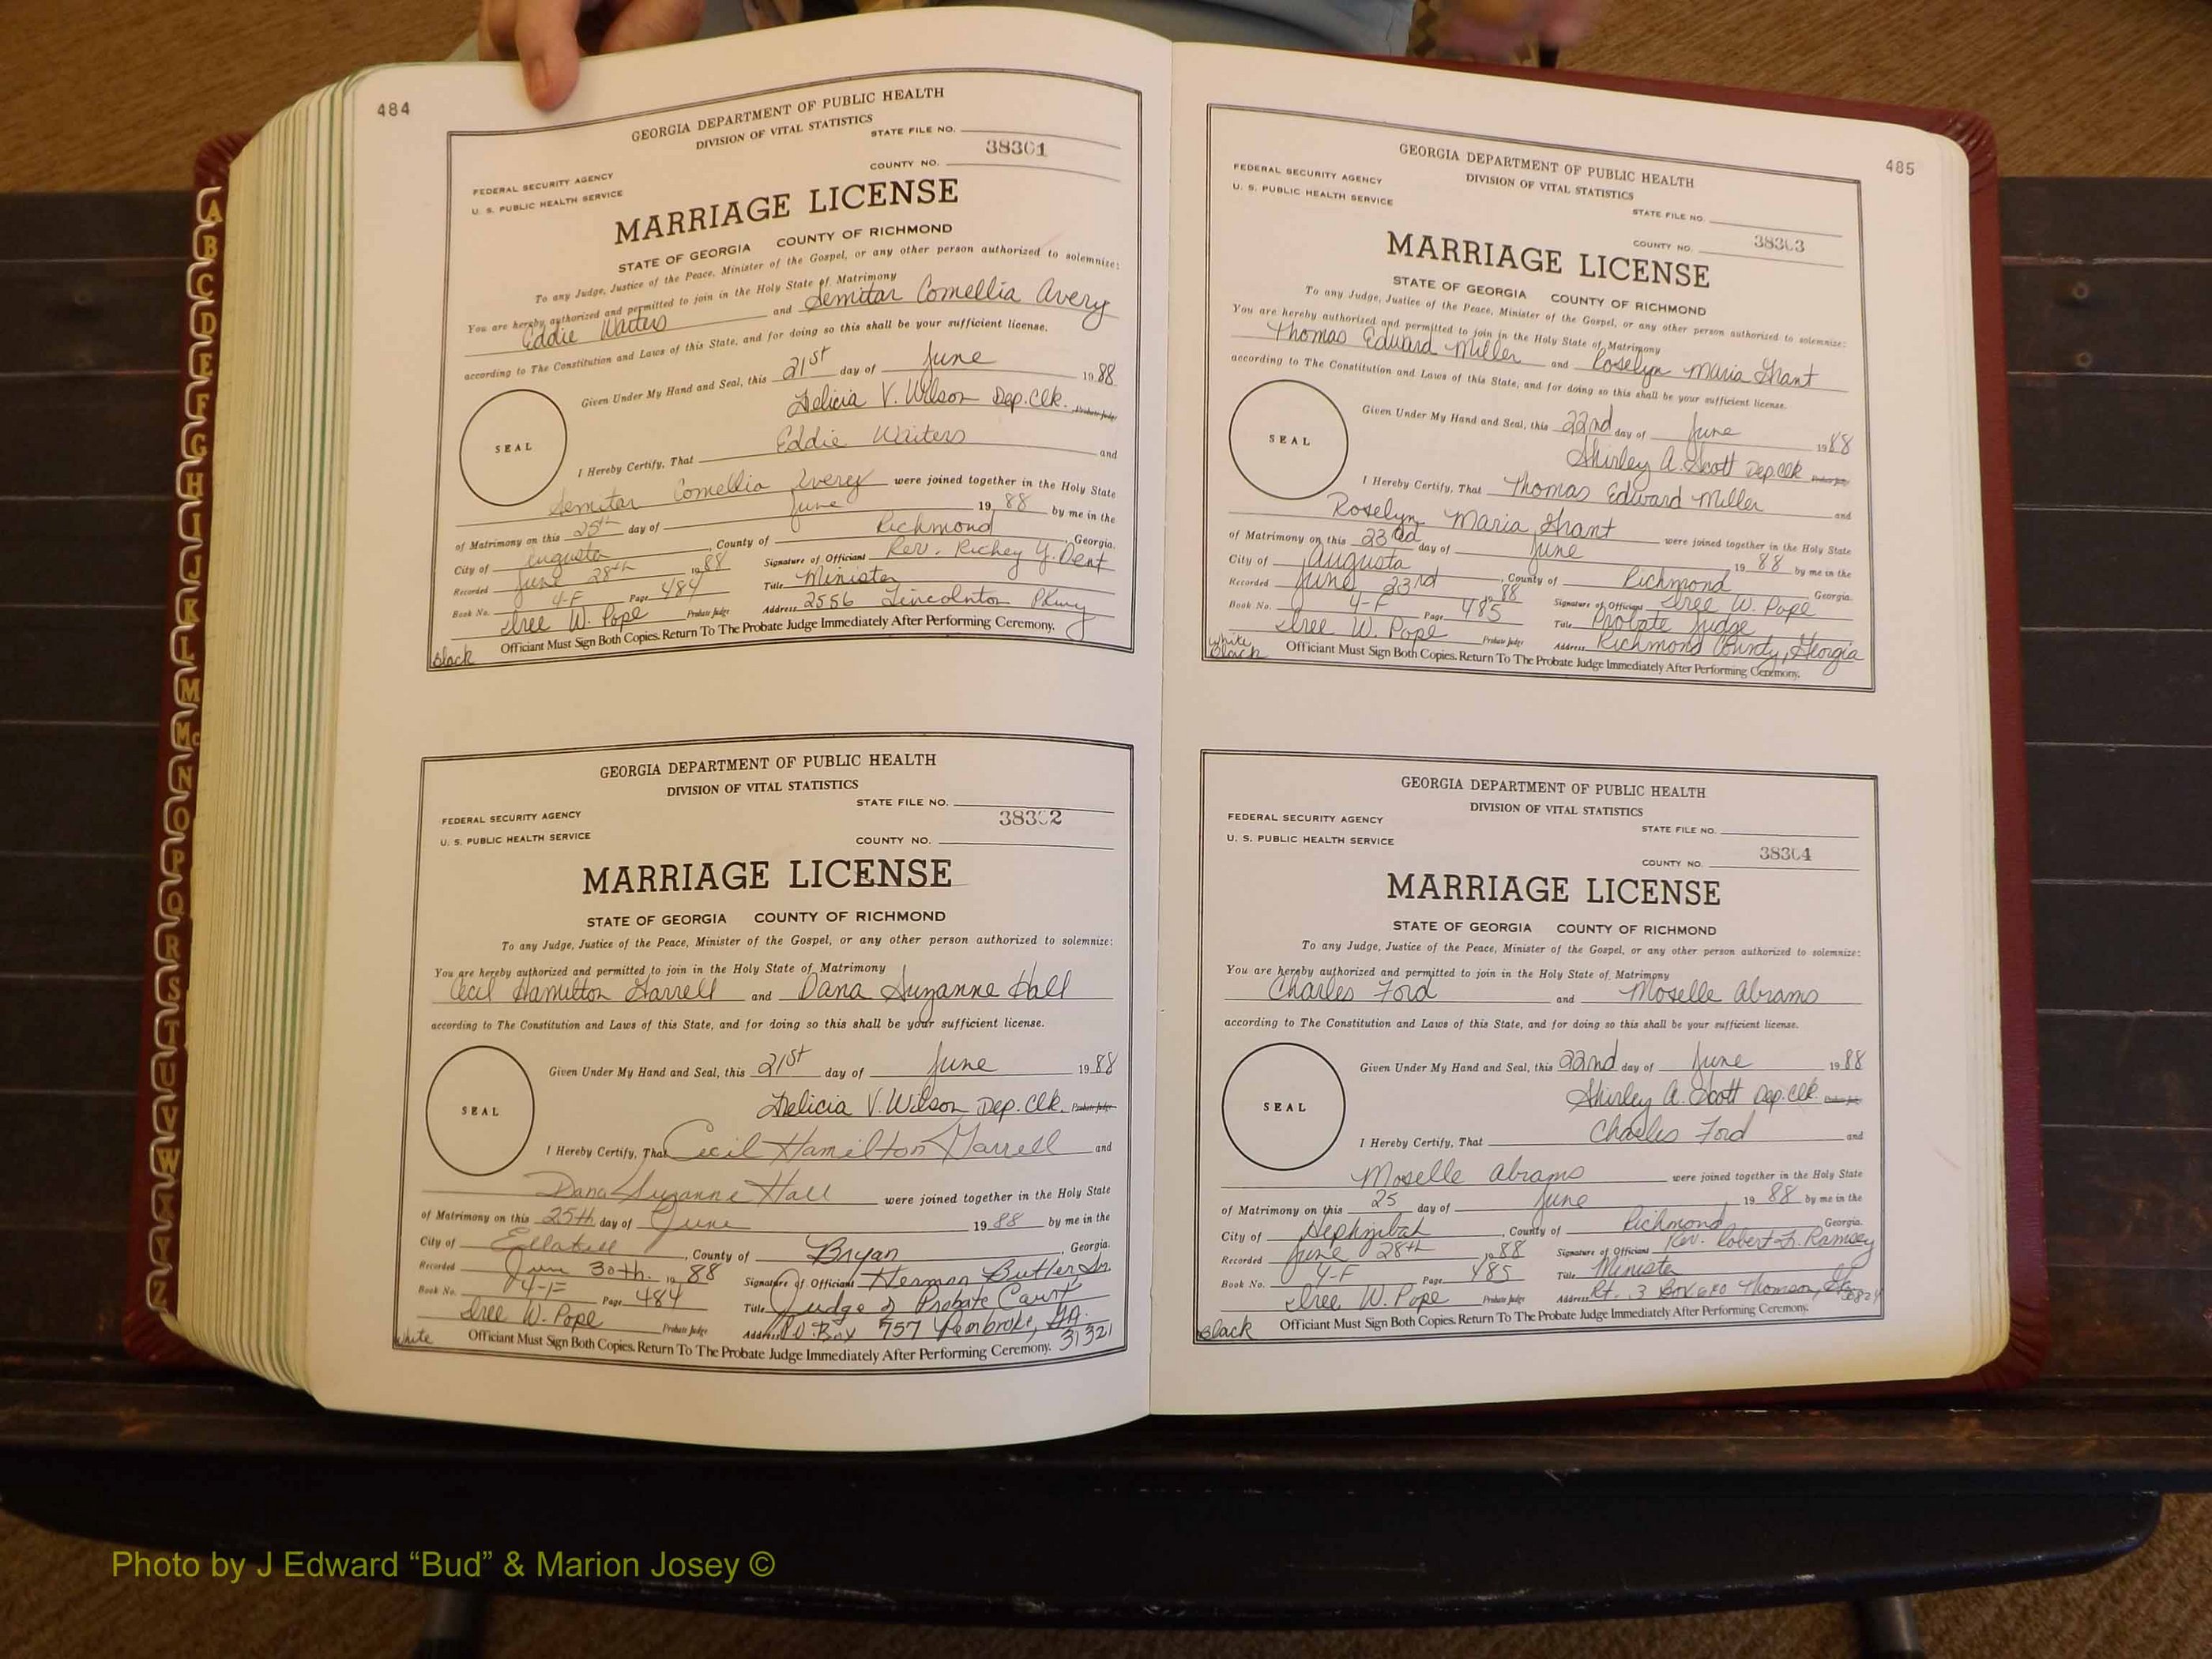 484
GEORGIA DEPARTMENT OF PUBLIC HEALTH
DIVISION OF VITAL STATISTICS
STATE FILE NO.
38301
COUNTY NO.
FEDERAL SECURITY AGENCY
U. S. PUBLIC HEALTH SERVICE
MARRIAGE LICENSE
STATE OF GEORGIA COUNTY OF RICHMOND
To any Judge, Justice of the Peace, Minister of the Gospel, or any other person authorized to solemnize:
You are hereby authorized and permitted to join in the Holy State of Matrimony
Eddie Waiters and Semitar Comellia Avery
according to The Constitution and Laws of this State, and for doing so this shall be your sufficient license.
Given Under My Hand and Seal, this 21st day of June 1988
Felicia V. Wilson Dep. Clk. Probate Judge
SEAL
I Hereby Certify, That Eddie Waiters and
Semitar Comellia Avery were joined together in the Holy State
of Matrimony on this 25th day of June 19 88 by me in the
City of Augusta, County of Richmond, Georgia.
Recorded June 28th 19 88 Signature of Officiant Rev. Richey Y. Dent
Book No. 4-F Page 484 Title Minister
Free W. Pope Probate Judge Address 2556 Lincolnton Pkwy
Officiant Must Sign Both Copies. Return To The Probate Judge Immediately After Performing Ceremony.
Black
GEORGIA DEPARTMENT OF PUBLIC HEALTH
DIVISION OF VITAL STATISTICS
STATE FILE NO.
38302
FEDERAL SECURITY AGENCY
U. S. PUBLIC HEALTH SERVICE
COUNTY NO.
MARRIAGE LICENSE
STATE OF GEORGIA COUNTY OF RICHMOND
To any Judge, Justice of the Peace, Minister of the Gospel, or any other person authorized to solemnize:
You are hereby authorized and permitted to join in the Holy State of Matrimony
Cecil Hamilton Harrell and Dana Suzanne Hall
according to The Constitution and Laws of this State, and for doing so this shall be your sufficient license.
Given Under My Hand and Seal, this 21st day of June 1988
Felicia V. Wilson Dep. Clk. Probate Judge
SEAL
I Hereby Certify, That Cecil Hamilton Harrell and
Dana Suzanne Hall were joined together in the Holy State
of Matrimony on this 25th day of June 19 88 by me in the
City of Ellabell, County of Bryan, Georgia.
Recorded June 30th. 19 88 Signature of Officiant Herman Butler Sr.
Book No. 4-F Page 484 Title Judge of Probate Court
Free W. Pope Probate Judge Address P.O. Box 757 Pembroke, GA. 31321
Officiant Must Sign Both Copies. Return To The Probate Judge Immediately After Performing Ceremony.
White
485
GEORGIA DEPARTMENT OF PUBLIC HEALTH
DIVISION OF VITAL STATISTICS
FEDERAL SECURITY AGENCY
U. S. PUBLIC HEALTH SERVICE
STATE FILE NO.
COUNTY NO. 38303
MARRIAGE LICENSE
STATE OF GEORGIA COUNTY OF RICHMOND
To any Judge, Justice of the Peace, Minister of the Gospel, or any other person authorized to solemnize:
You are hereby authorized and permitted to join in the Holy State of Matrimony
Thomas Edward Miller and Roselyn Maria Grant
according to The Constitution and Laws of this State, and for doing so this shall be your sufficient license.
Given Under My Hand and Seal, this 22nd day of June 1988
Shirley A. Scott Dep. Clk Probate Judge
SEAL
I Hereby Certify, That Thomas Edward Miller and
Roselyn Maria Grant were joined together in the Holy State
of Matrimony on this 23rd day of June 19 88 by me in the
City of Augusta, County of Richmond Georgia.
Recorded June 23rd 1988 Signature of Officiant Free W. Pope
Book No. 4-F Page 485 Title Probate Judge
Free W. Pope Probate Judge Address Richmond County, Georgia
White
Black
Officiant Must Sign Both Copies. Return To The Probate Judge Immediately After Performing Ceremony.
GEORGIA DEPARTMENT OF PUBLIC HEALTH
DIVISION OF VITAL STATISTICS
FEDERAL SECURITY AGENCY
STATE FILE NO.
U. S. PUBLIC HEALTH SERVICE
COUNTY NO. 38304
MARRIAGE LICENSE
STATE OF GEORGIA COUNTY OF RICHMOND
To any Judge, Justice of the Peace, Minister of the Gospel, or any other person authorized to solemnize:
You are hereby authorized and permitted to join in the Holy State of Matrimony
Charles Ford and Moselle Abrams
according to The Constitution and Laws of this State, and for doing so this shall be your sufficient license.
Given Under My Hand and Seal, this 22nd day of June 1988
Shirley A. Scott Dep. Clk. Probate Judge
SEAL
I Hereby Certify, That Charles Ford and
Moselle Abrams were joined together in the Holy State
of Matrimony on this 25 day of June, 19 88 by me in the
City of Hephzibah, County of Richmond Georgia.
Recorded June 28th 1988 Signature of Officiant Rev. Robert L. Ramsey
Book No. 4-F Page 485 Title Minister
Free W. Pope Probate Judge Address Rt. 3 Box Thomson, Ga 30824
Officiant Must Sign Both Copies. Return To The Probate Judge Immediately After Performing Ceremony.
Black
A
B
C
D
E
F
G
H
I
J
K
L
M
Mc
N
O
P
Q
R
S
T
U
V
W
X
Y
Z
Photo by J Edward “Bud” & Marion Josey ©